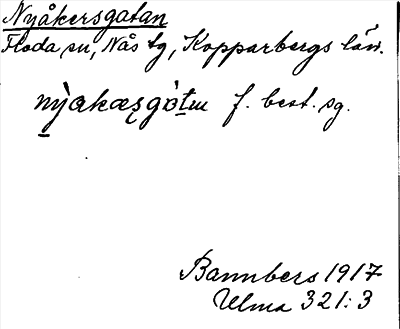 Nyåkersgatan
Floda sn, Nås tg, Kopparbergs län.
f. best. sg.
Bannbers 1917
Ulma 321:3